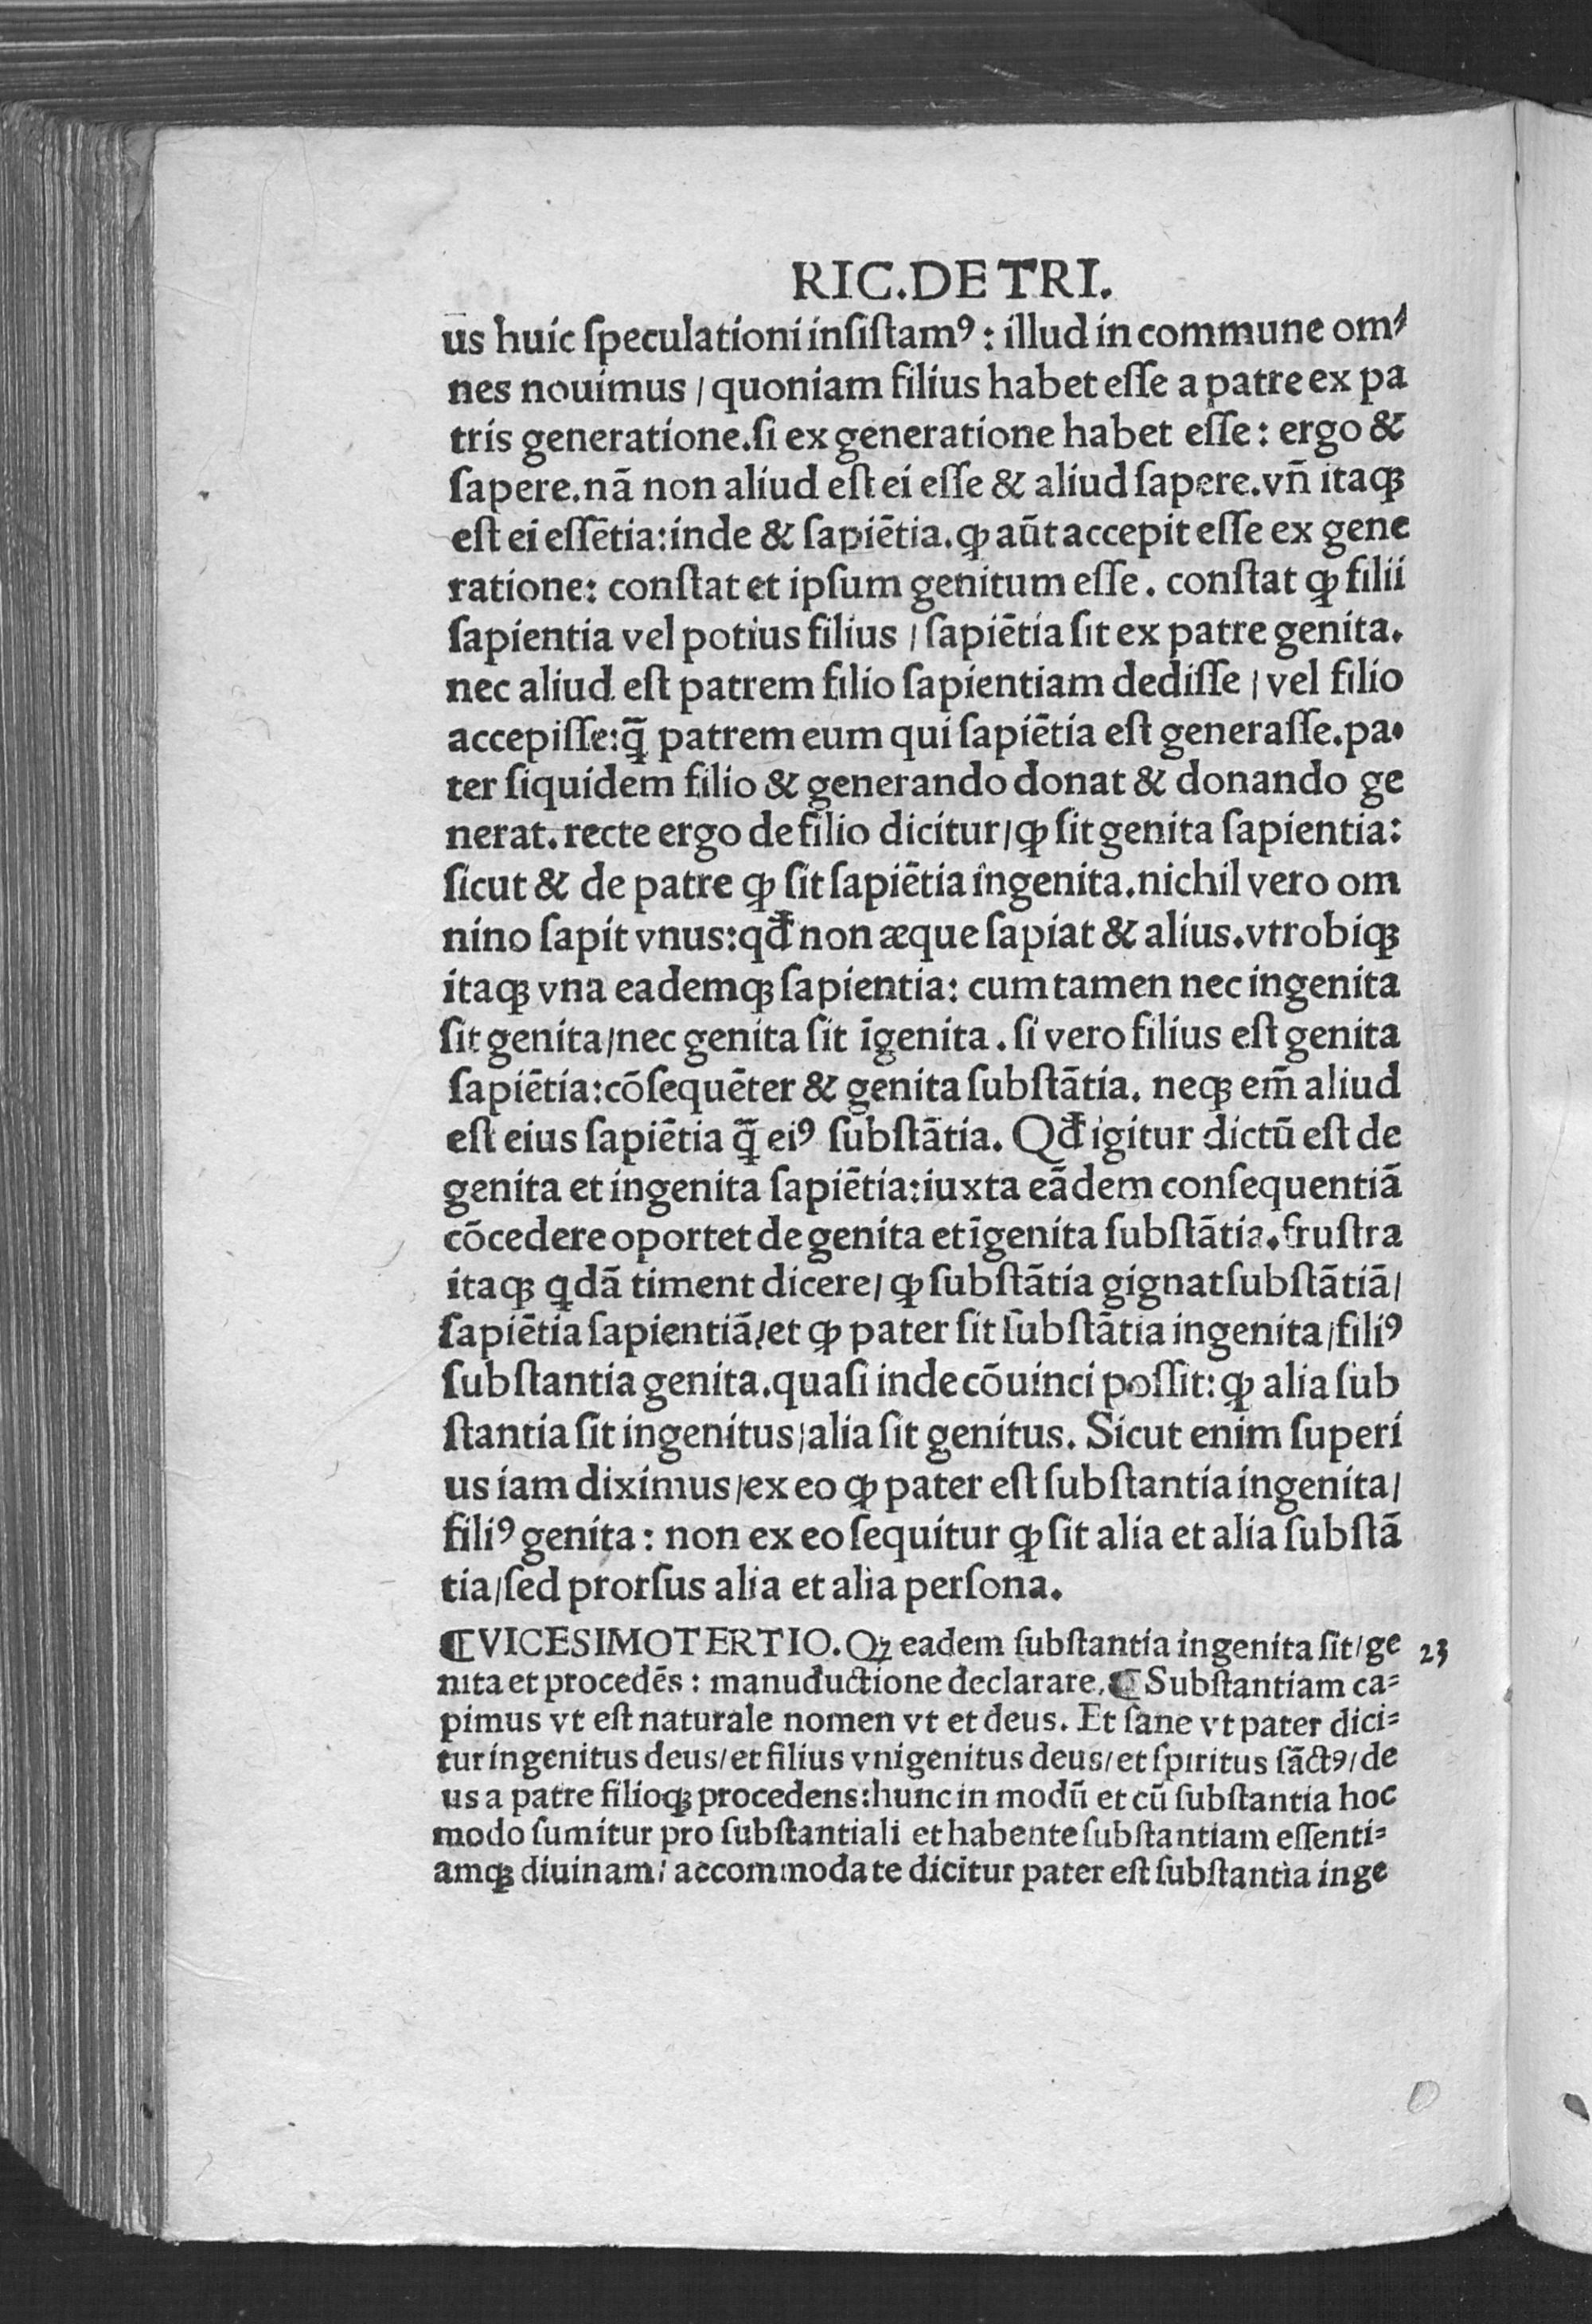 RIC.DE TRI.
us huic ſpeculationi inſiſtamꝰ: illud in commune om⸗
nes nouimus / quoniam filius habet eſſe a patre ex pa
tris generatione. ſi ex generatione habet eſſe: ergo &
ſapere. nã non aliud eſt ei eſſe & aliud ſapere. vñ itaqꝫ
eſt ei eſſẽtia: inde & ſapiẽtia. ꝙ aũt accepit eſſe ex gene
ratione: conſtat et ipſum genitum eſſe. conſtat ꝙ filii
ſapientia vel potius filius / ſapiẽtia ſit ex patre genita.
nec aliud eſt patrem filio ſapientiam dediſſe / vel filio
accepiſſe: ꝗ̃ patrem eum qui ſapiẽtia eſt generaſſe. pa⸗
ter ſiquidem filio & generando donat & donando ge
nerat. recte ergo de filio dicitur / ꝙ ſit genita ſapientia:
ſicut & de patre ꝙ ſit ſapiẽtia ingenita. nichil vero om
nino ſapit vnus: qđ non æque ſapiat & alius. vtrobiqꝫ
itaqꝫ vna eademqꝫ ſapientia: cum tamen nec ingenita
ſit genita / nec genita ſit ĩgenita. ſi vero filius eſt genita
ſapiẽtia: cõſequẽter & genita ſubſtãtia. neqꝫ em̃ aliud
eſt eius ſapiẽtia ꝗ̃ eiꝰ ſubſtãtia. Qđ igitur dictũ eſt de
genita et ingenita ſapiẽtia: iuxta eãdem conſequentiã
cõcedere oportet de genita et ĩgenita ſubſtãtia. fruſtra
itaqꝫ ꝗdã timent dicere / ꝙ ſubſtãtia gignat ſubſtãtiã /
ſapiẽtia ſapientiã / et ꝙ pater ſit ſubſtãtia ingenita / filiꝰ
ſubſtantia genita. quaſi inde cõuinci poſſit: ꝙ alia ſub
ſtantia ſit ingenitus / alia ſit genitus. Sicut enim ſuperi
us iam diximus / ex eo ꝙ pater eſt ſubſtantia ingenita /
filiꝰ genita: non ex eo ſequitur ꝙ ſit alia et alia ſubſtã
tia / ſed prorſus alia et alia perſona.
¶VICESIMOTERTIO. Qꝫ eadem ſubſtantia ingenita ſit / ge 23
nita et procedẽs: manuductione declarare. ¶ Subſtantiam ca⸗
pimus vt eſt naturale nomen vt et deus. Et ſane vt pater dici⸗
tur ingenitus deus / et filius vnigenitus deus / et ſpiritus ſãctꝰ / de
us a patre filioqꝫ procedens: hunc in modũ et cũ ſubſtantia hoc
modo ſumitur pro ſubſtantiali et habente ſubſtantiam eſſenti⸗
amqꝫ diuinam / accommodate dicitur pater eſt ſubſtantia inge